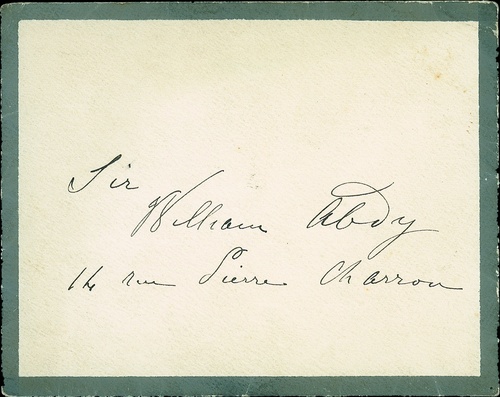 Sir
William Abdy
14 rue Pierre Charron